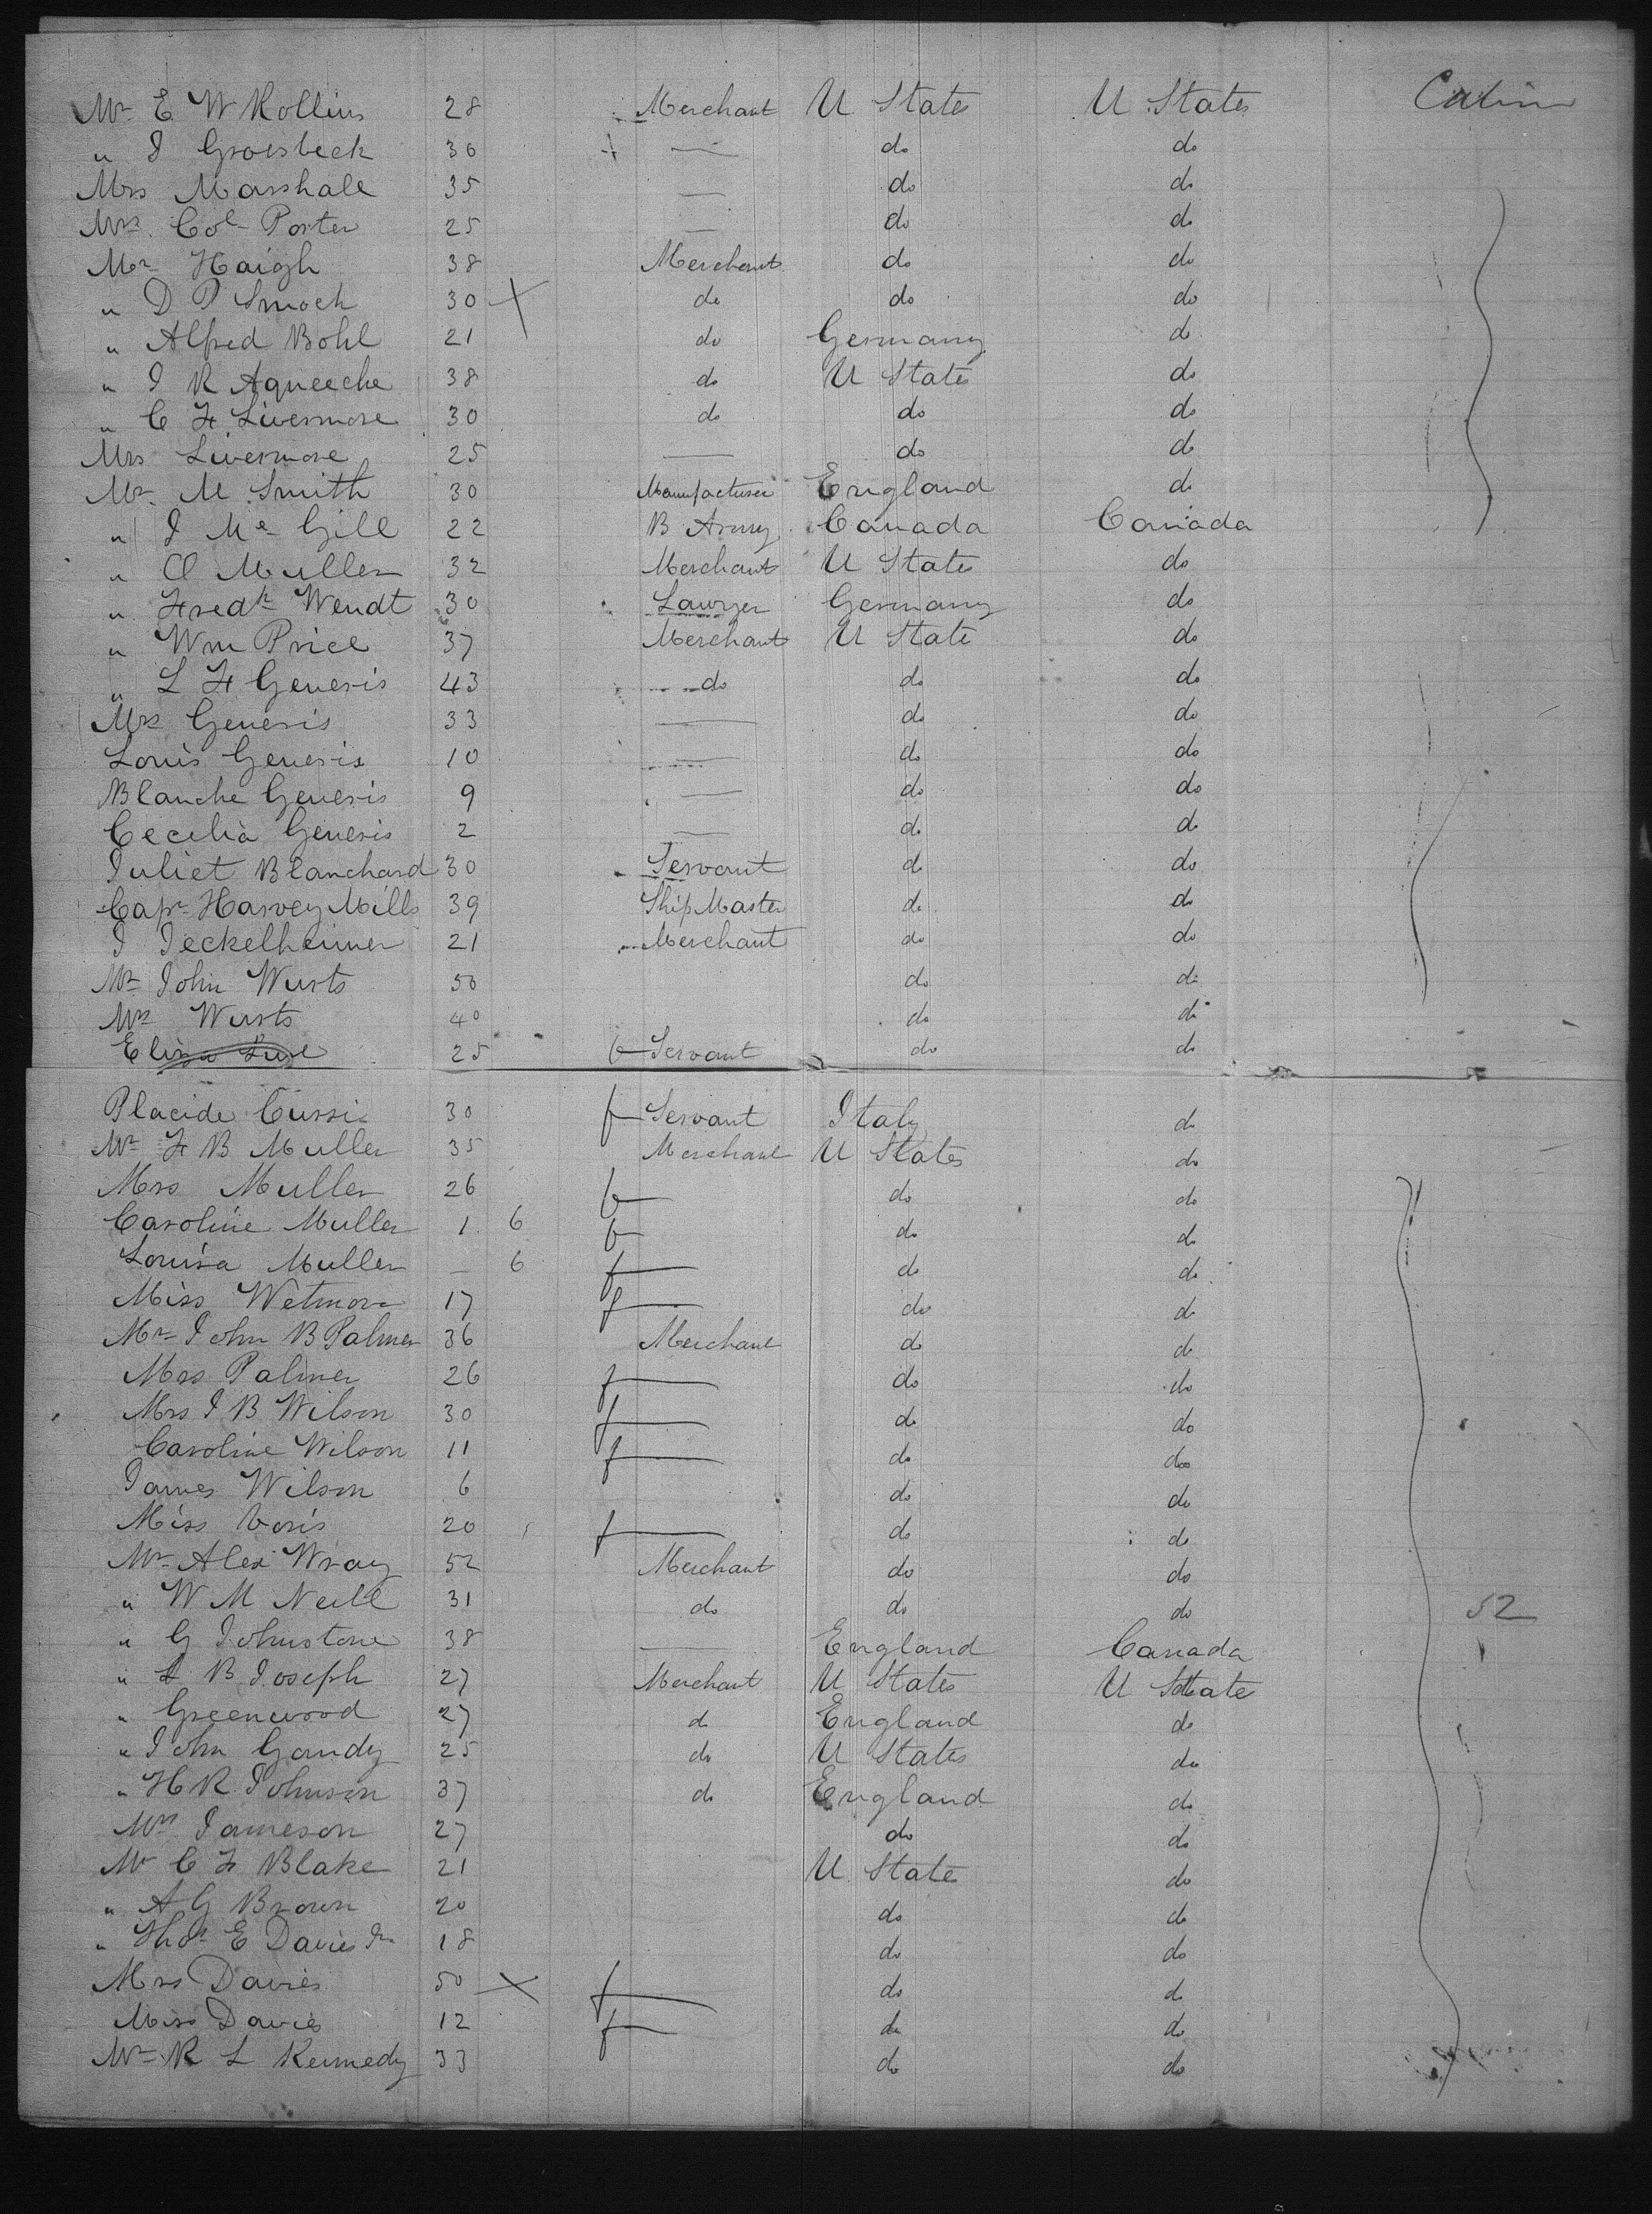 Mr E W Rollins 28 Merchant U States U States Cabin
" J Groesbeck 30 — do do
Mrs Marshall 35 — do do
Mrs Col Porter 25 — do do
Mr Haigh 38 Merchant do do
" D P Smock 30 do do do
" Alfred Bohl 21 do Germany do
" J R Aqueeche 38 do U States do
" C F Livermore 30 do do do
Mrs Livermore 25 — do do
Mr M Smith 30 Manufacturer England do
" J Mc Gill 22 B Army Canada Canada
" O Muller 32 Merchant U States do
" Fredk Wendt 30 Lawyer Germany do
" Wm Price 37 Merchant U State do
" L F Generis 43 do do do
Mrs Generis 33 — do do
Louis Generis 10 — do do
Blanche Generis 9 — do do
Cecelia Generis 2 — do do
Juliet Blanchard 30 Servant do do
Capn Harvey Mills 39 Ship Master do do
J Jeckelheimer 21 Merchant do do
Mr John Wurts 50 do do
Mrs Wurts 40 do do
Eliza 25 f Servant do do
Placide Cussi 30 f Servant Italy do
Mr F B Muller 35 Merchant U States do
Mrs Muller 26 f — do do
Caroline Muller 1 6 f do do
Louisa Muller — 6 f — do do
Miss Wetmore 17 f — do do
Mr John B Palmer 36 Merchant do do
Mrs Palmer 26 f — do do
Mrs J B Wilson 30 f — do do
Caroline Wilson 11 f — do do
James Wilson 6 do do
Miss Voris 20 f — do do
Mr Alex Wray 52 Merchant do do
" W M Neill 31 do do do 52
" G Johnstone 38 — England Canada
" L B Joseph 27 Merchant U States U State
" Greenwood 27 do England do
" John Gandy 25 do U States do
" H R Johnson 37 do England do
Mrs Jameson 27 do do
Mr C F Blake 21 U States do
" A G Brown 20 do do
" Thos E Davis Jr 18 do do
Mrs Davies 50 f — do do
Miss Davies 12 f — do do
Mr R L Kennedy 33 do do